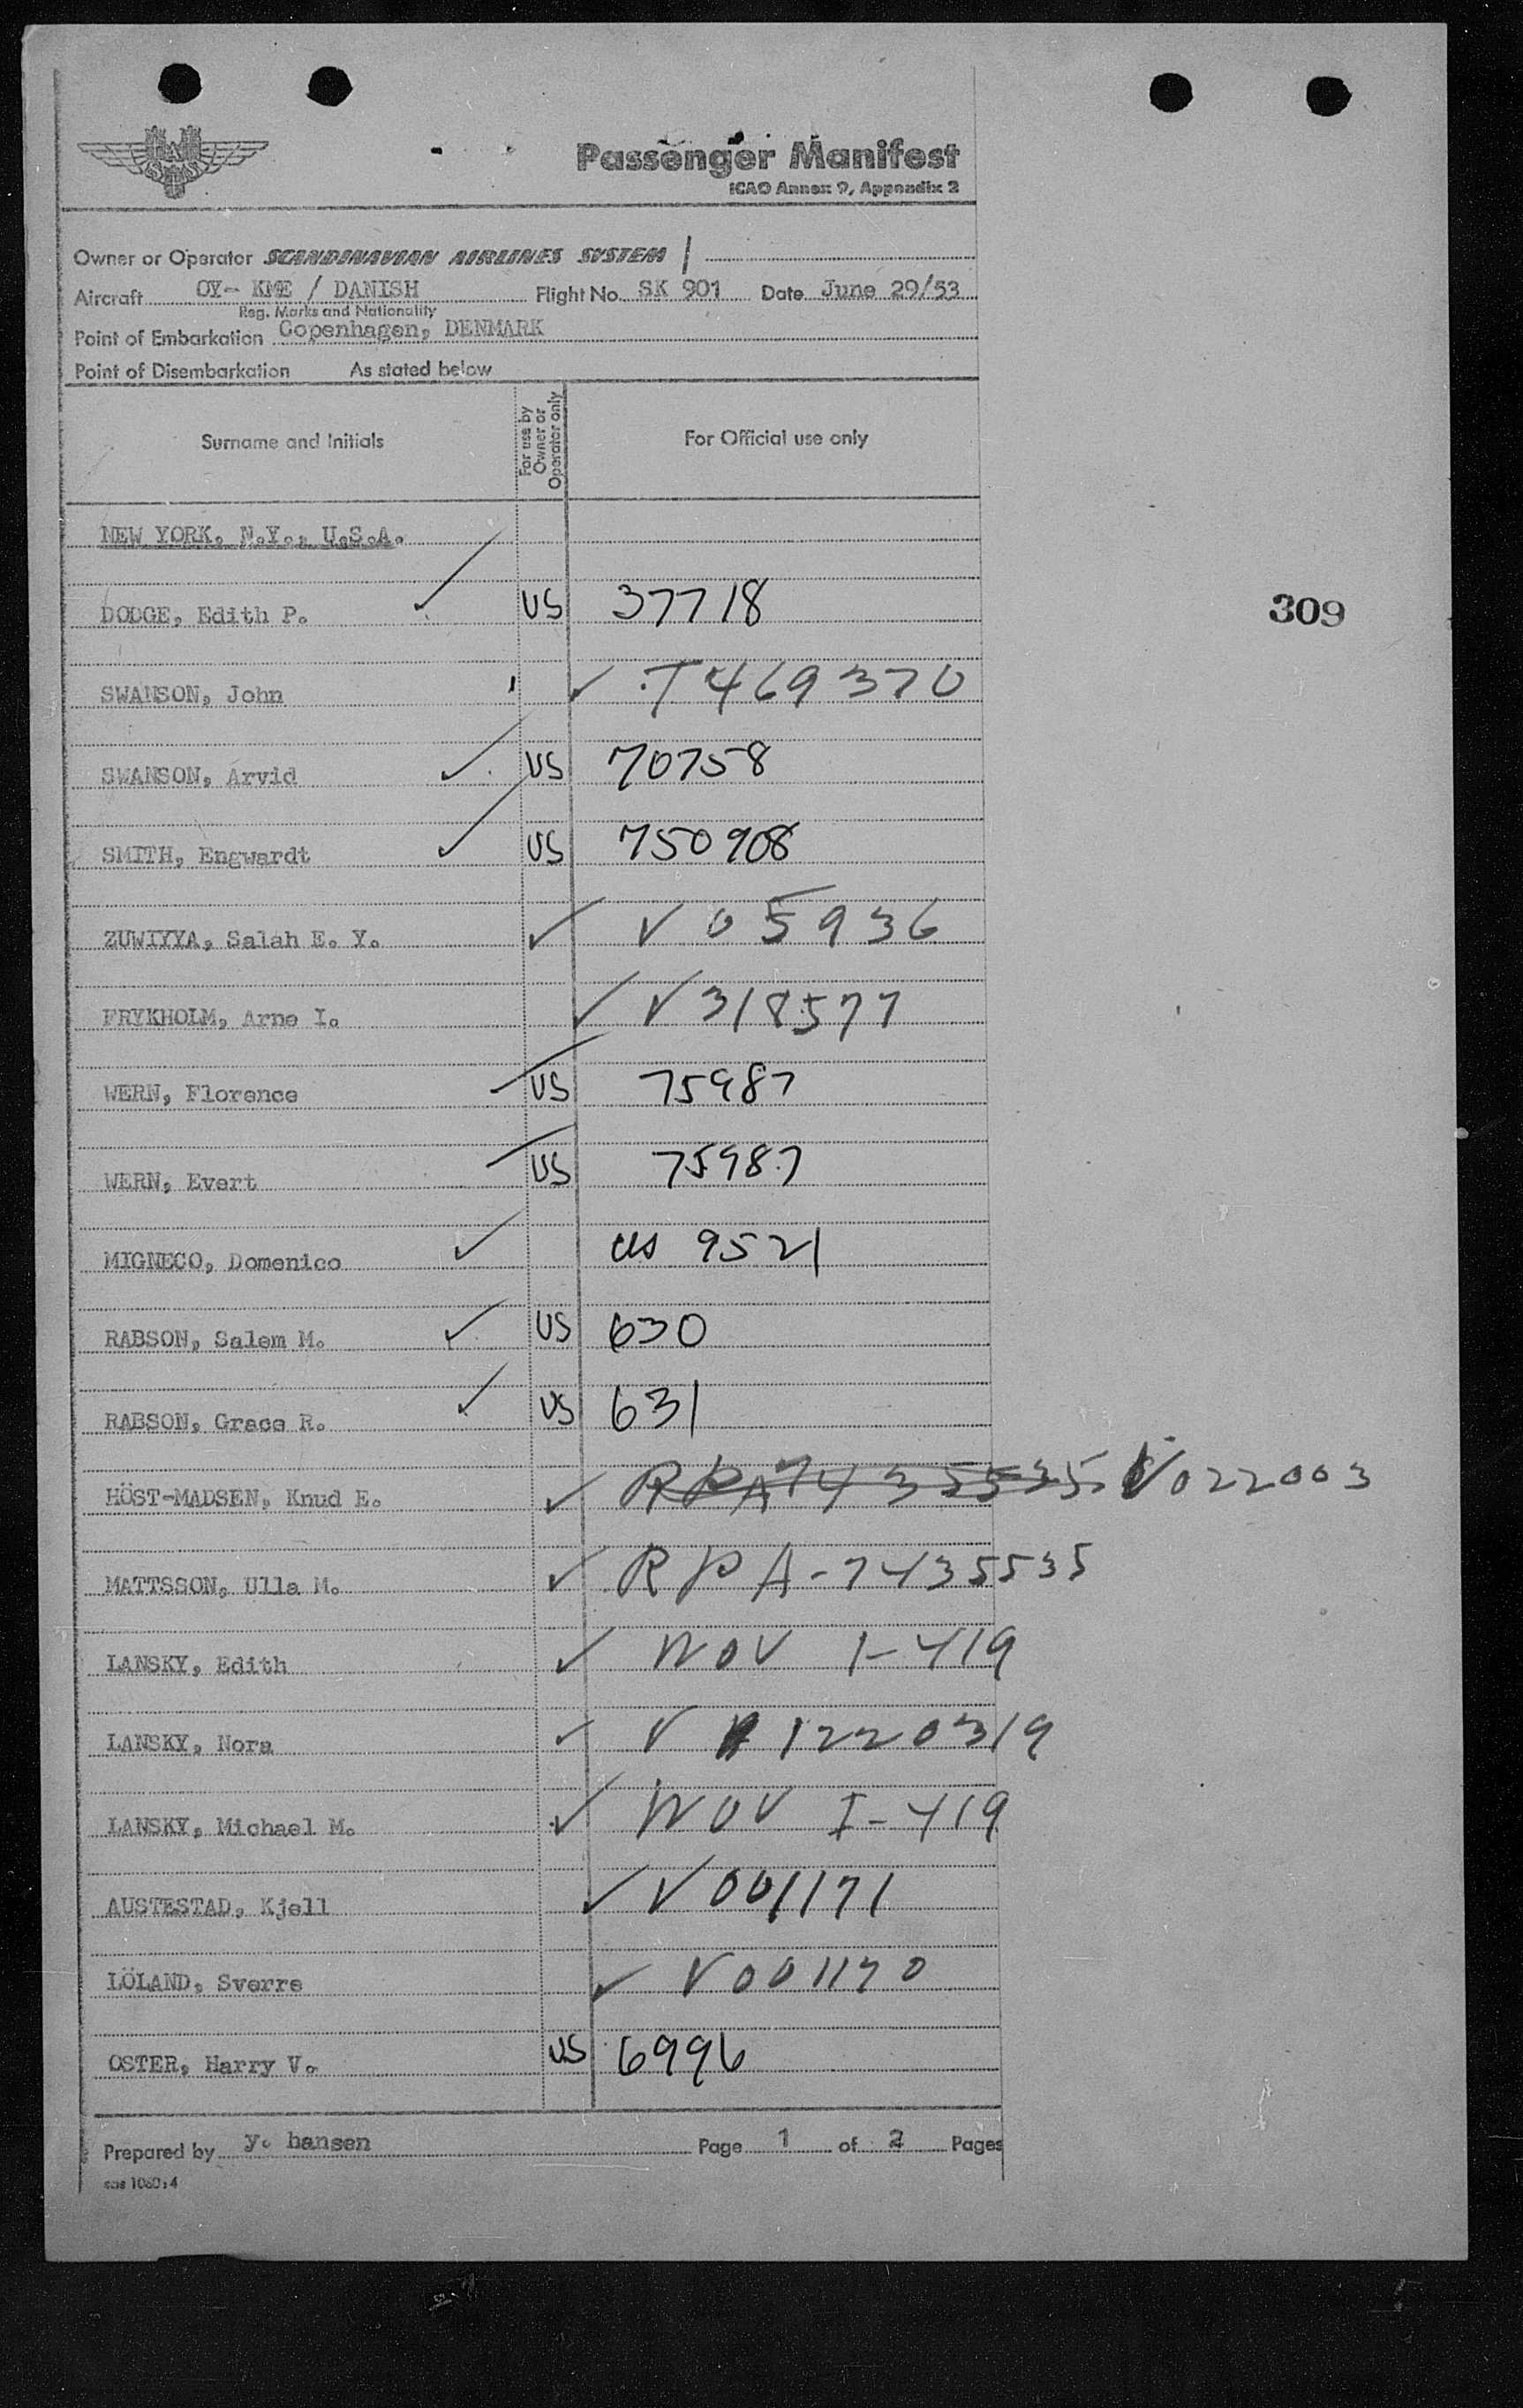 Passenger Manifest
ICAO Annex 9, Appendix 2
Owner or Operator SCANDINAVIAN AIRLINES SYSTEM /
Aircraft OY- KME / DANISH Flight No. SK 901 Date June 29/53
Reg. Marks and Nationality
Point of Embarkation Copenhagen, DENMARK
Point of Disembarkation As stated below
Surname and Initials For use by Owner or Operator only For Official use only
NEW YORK, N.Y., U.S.A.
DODGE, Edith P. ✓ US 37718
309
SWANSON, John ✓ T469370
SWANSON, Arvid ✓ US 70758
SMITH, Engwardt ✓ US 750908
ZUWIYYA, Salah E. Y. ✓ V 05936
FRYKHOLM, Arne I. ✓ V318577
WERN, Florence US 75987
WERN, Evert US 75987
MIGNECO, Domenico ✓ US 9521
RABSON, Salem M. ✓ US 630
RABSON, Grace R. ✓ US 631
HÖST-MADSEN, Knud E. ✓ RPA7435535 V022003
MATTSSON, Ulla M. ✓ RPA-7435535
LANSKY, Edith ✓ NOV I-419
LANSKY, Nora ✓ V 1220319
LANSKY, Michael M. ✓ NOV I-419
AUSTESTAD, Kjell ✓ V001171
LÖLAND, Sverre ✓ V001170
OSTER, Harry V. US 6996
Prepared by y. hansen Page 1 of 2 Pages
sas 1060:4